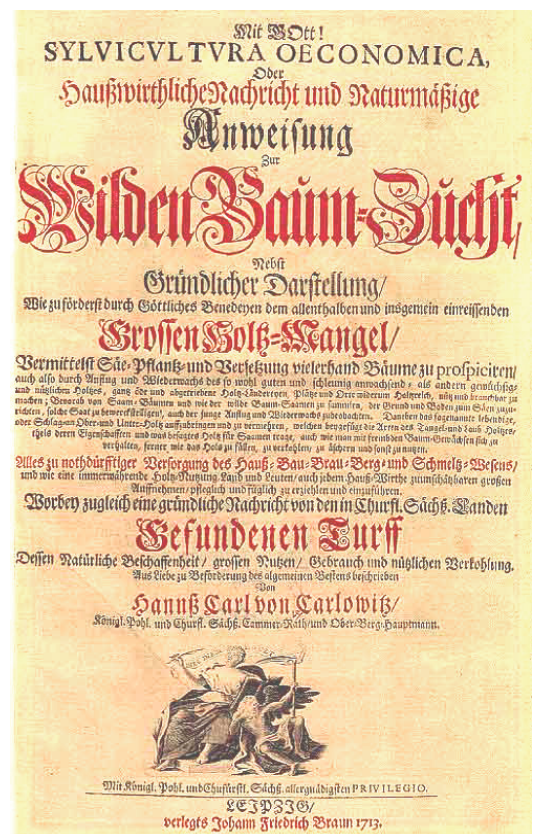 Mit GOtt!
SYLVICVLTVRA OECONOMICA,
Oder
Haußwirthliche Nachricht und Naturmäßige
Anweisung
Zur
Wilden Baum-Zucht,
Nebst
Gründlicher Darstellung/
Wie zu förderst durch Göttliches Benedeyen dem allenthalben und insgemein einreissenden
Grossen Holtz-Mangel/
Vermittelst Säe-Pflantz-und Versetzung vielerhand Bäume zu prospiciren/
auch also durch Anflug und Wiederwachs des so wohl guten und schleunig anwachsend- als andern gewüchsig-
und nützlichen Holtzes, gantz öde und abgetriebene Holtz-Ländereyen, Plätze und Orte wiederum Holtzreich, nütz und brauchbar zu
machen; Bevorab von Saam-Bäumen und wie der wilde Baum-Saamen zu sammlen, der Grund und Boden zum Säen zuzu-
richten, solche Saat zu bewerckstelligen, auch der junge Anflug und Wiederwachs zu beobachten. Daneben das sogenannte lebendige,
oder Schlag-an Ober-und Unter-Holtz aufzubringen und zu vermehren, welchen beygefügt die Arten des Tangel-und Laub-Holtzes,
theils deren Eigenschafften und was besagtes Holtz für Saamen trage, auch wie man mit frembden Baum-Gewächsen sich zu
verhalten, ferner wie das Holtz zu fällen, zu verkohlen, zu äschern und sonst zu nutzen.
Alles zu nothdürfftiger Versorgung des Hauß-Bau-Brau-Berg-und Schmeltz-Wesens/
und wie eine immerwährende Holtz-Nutzung, Land und Leuten, auch jedem Hauß-Wirthe zu unschätzbaren großen
Auffnehmen, pfleglich und füglich zu erziehlen und einzuführen.
Worbey zugleich eine gründliche Nachricht von den in Churfl. Sächß. Landen
Gefundenen Turff
Dessen Natürliche Beschaffenheit/ grossen Nutzen/ Gebrauch und nützlichen Verkohlung.
Aus Liebe zu Beförderung des algemeinen Bestens beschrieben
Von
Hannß Carl von Carlowitz/
Königl. Pohl. und Churfl. Sächß. Cammer-Rath/ und Ober-Berg-Hauptmann.
Mit Königl. Pohl. und Churfürstl. Sächß. allergnädigsten PRIVILEGIO.
LEIPZIG/
verlegts Johann Friedrich Braun 1713.